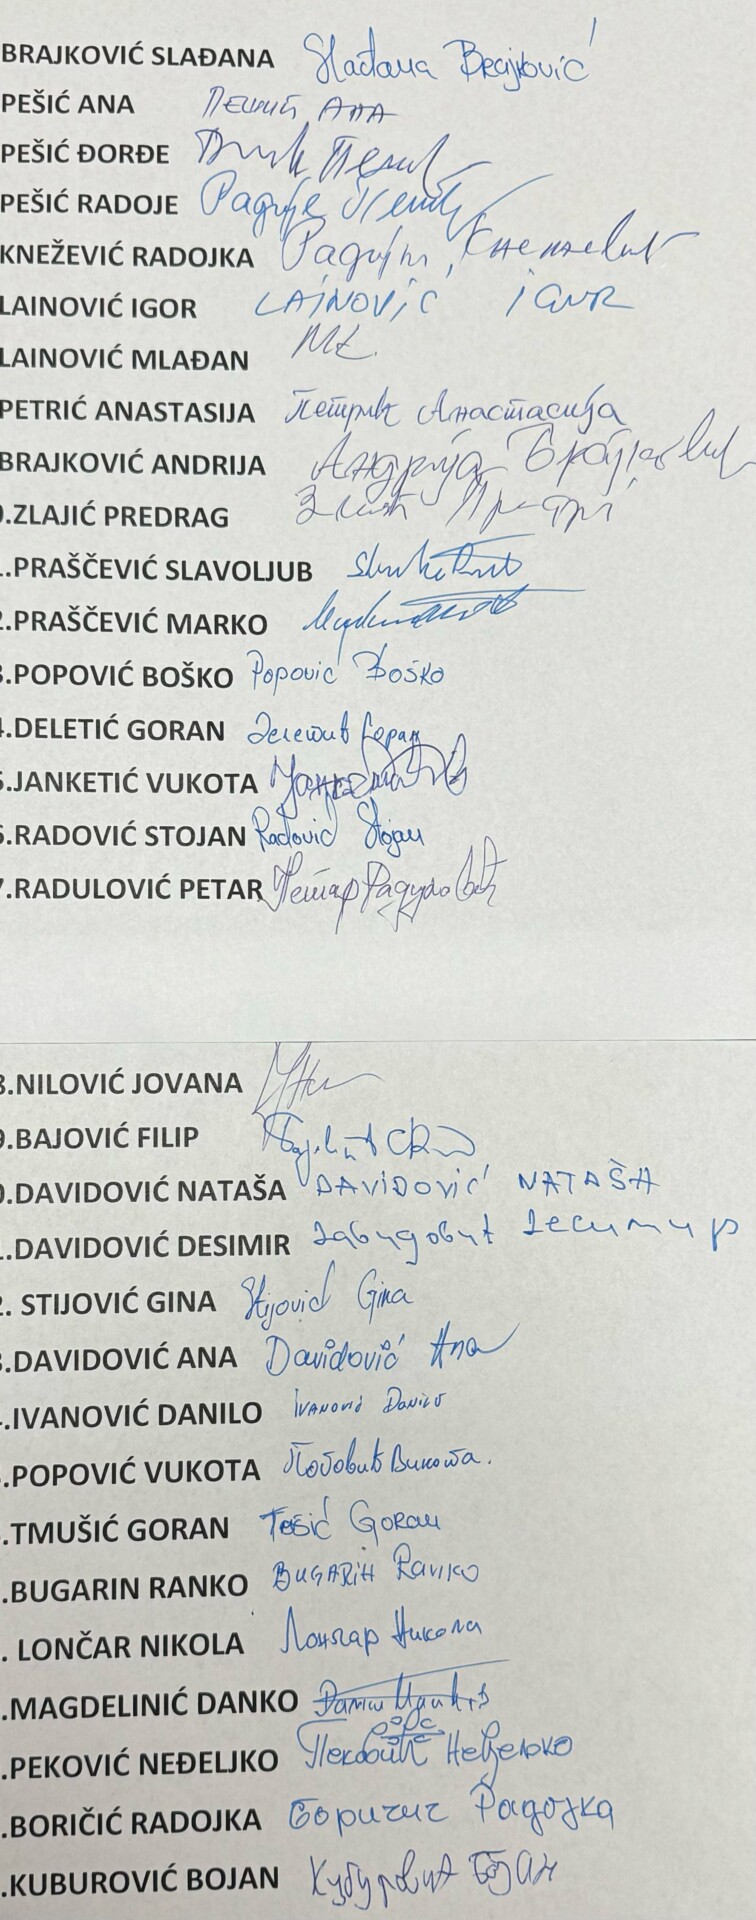 BRAJKOVIĆ SLAĐANA Slađana Brajković
PEŠIĆ ANA Пешић Ана
PEŠIĆ ĐORĐE
PEŠIĆ RADOJE Радоје Пешић
KNEŽEVIĆ RADOJKA Кнежевић
LAINOVIĆ IGOR LAINOVIĆ IGOR
LAINOVIĆ MLAĐAN
PETRIĆ ANASTASIJA Петрић Анастасија
BRAJKOVIĆ ANDRIJA Андрија Брајковић
.ZLAJIĆ PREDRAG
.PRAŠČEVIĆ SLAVOLJUB
.PRAŠČEVIĆ MARKO
.POPOVIĆ BOŠKO Popović Boško
.DELETIĆ GORAN Делетић Горан
.JANKETIĆ VUKOTA
.RADOVIĆ STOJAN Radović Stojan
.RADULOVIĆ PETAR Петар Радуловић
.NILOVIĆ JOVANA
.BAJOVIĆ FILIP
.DAVIDOVIĆ NATAŠA DAVIDOVIĆ NATAŠA
.DAVIDOVIĆ DESIMIR Давидовић Десимир
. STIJOVIĆ GINA Stijović Gina
.DAVIDOVIĆ ANA Davidović Ana
.IVANOVIĆ DANILO Ivanović Danilo
.POPOVIĆ VUKOTA Поповић Вукота.
.TMUŠIĆ GORAN Goran
.BUGARIN RANKO BUGARIN Ranko
. LONČAR NIKOLA Лончар Никола
.MAGDELINIĆ DANKO
.PEKOVIĆ NEĐELJKO Пековић Неђељко
.BORIČIĆ RADOJKA Боричић Радојка
.KUBUROVIĆ BOJAN Кубуровић Бојан